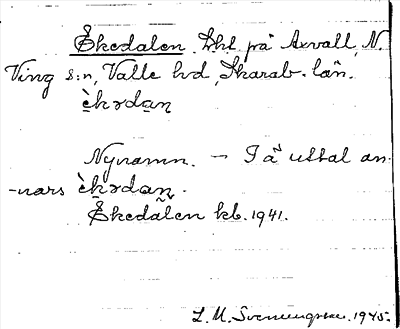 Ekedalen. Lht på Axvall, N.
Ving s:n, Valle hd, Skarab. län.
è̀kədan
Nynamn. – I ä. uttal an-
-nars è̀kədan.
Ekedalen kb. 1941.
L. M. Svenungsson. 1945.